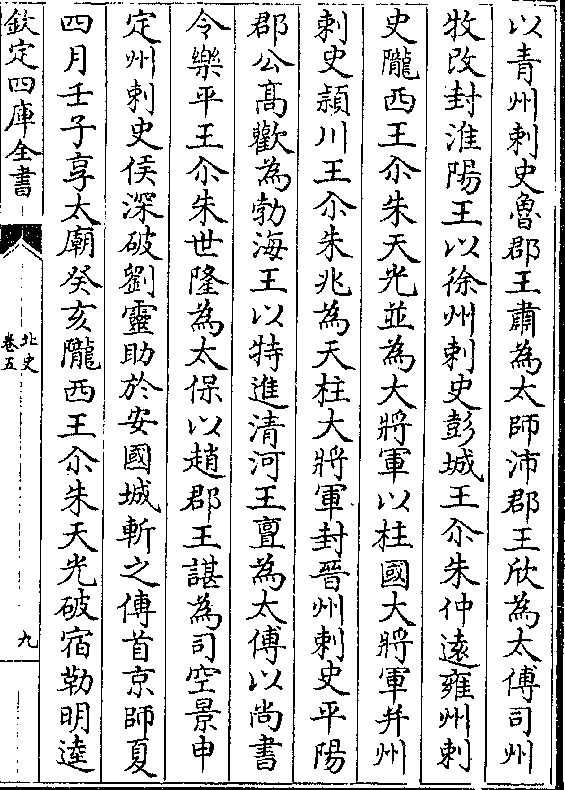 以青州刺史魯郡王肅為太師沛郡王欣為太傅司州
牧改封淮陽王以徐州刺史彭城王尒朱仲逺雍州刺
史隴西王尒朱天光並為大將軍以柱國大將軍并州
刺史潁川王尒朱兆為天柱大將軍封晉州刺史平陽
郡公髙歡為勃海王以特進清河王亶為太傅以尚書
令樂平王尒朱世隆為太保以趙郡王諶為司空景申
定州刺史侯深破劉靈助於安國城斬之傳首京師夏
四月壬子享太廟癸亥隴西王尒朱天光破宿勒明逹
欽定四庫全書
北史
卷五
九